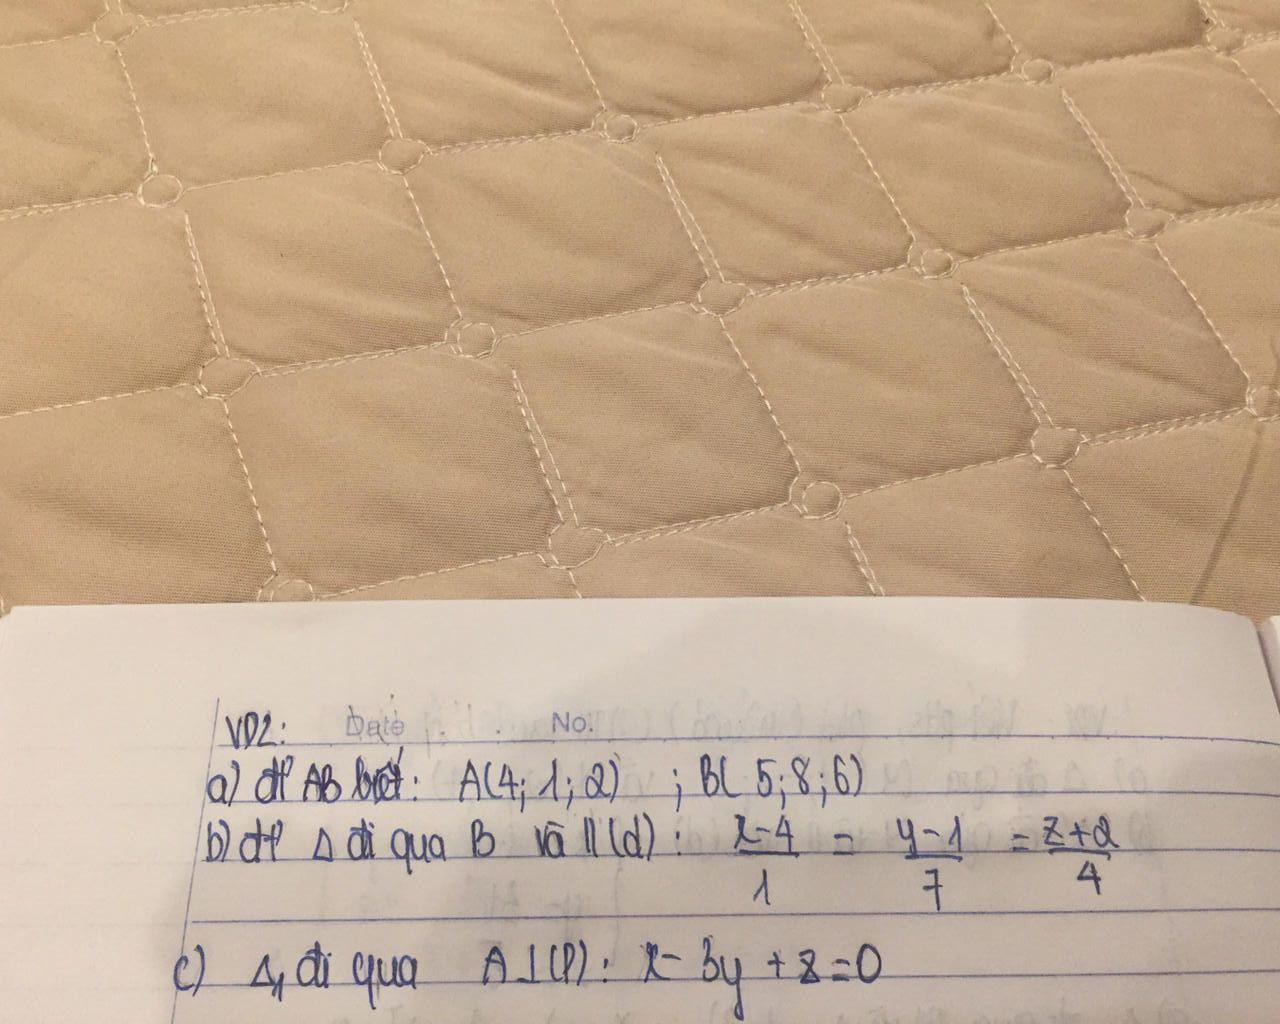 VD2: Date . . No.
a) đt AB biết: A(4; 1; 2) ; B( 5; 8; 6)
b) đt Δ đi qua B và // (d) : x-4/1 = y-1/7 = z+2/4
c) Δ₁ đi qua A ⊥ (P) : x - 3y + z = 0